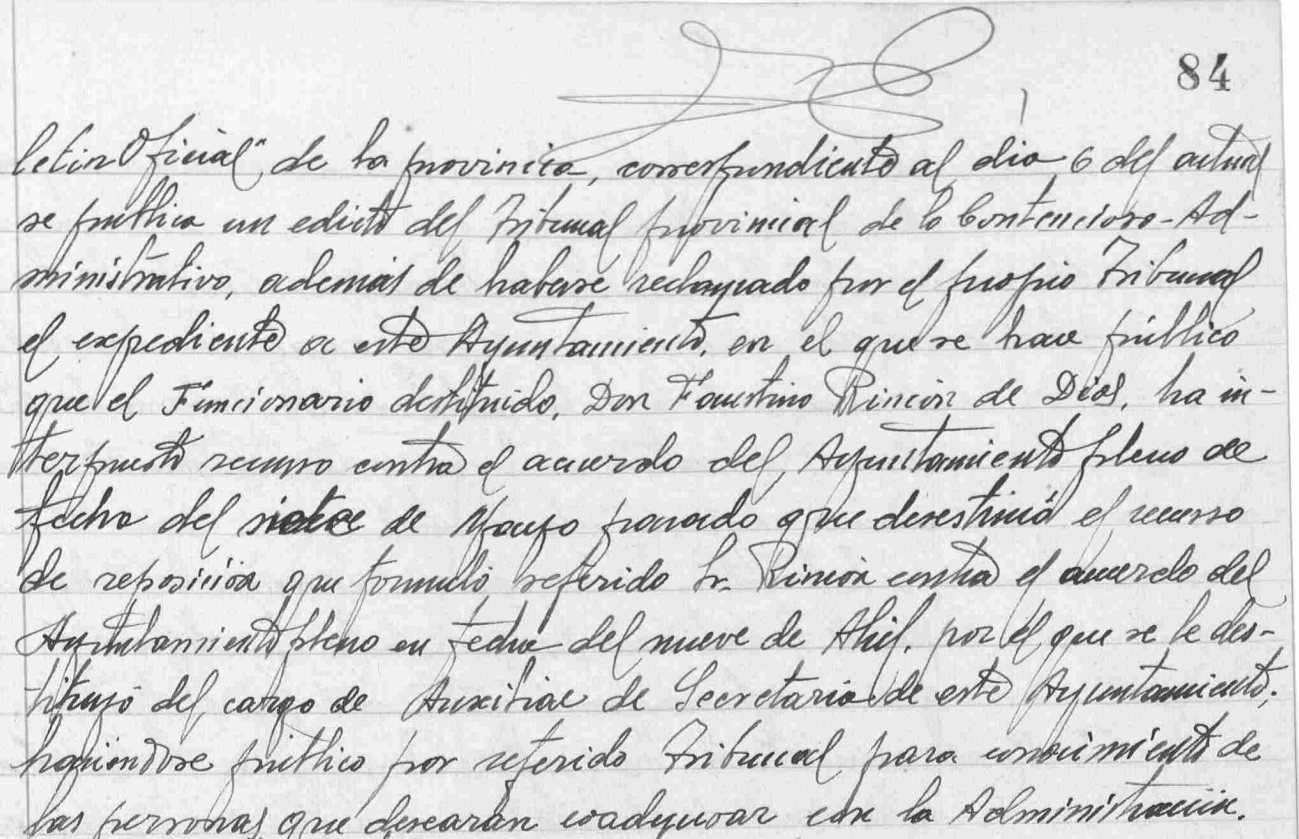 84
letin Oficial" de la provincia, correspondiente al dia 6 del actual
se publica un edicto del Tribunal provincial de lo Contencioso-Ad-
ministrativo, además de haberse reclamado por el propio Tribunal
el expediente a este Ayuntamiento, en el que se hace público
que el Funcionario destituido, Don Faustino Rincón de Dios, ha in-
terpuesto recurso contra el acuerdo del Ayuntamiento pleno de
fecha del siete de Mayo pasado que desestimó el recurso
de reposición que formuló referido Sr. Rincón contra el acuerdo del
Ayuntamiento pleno en fecha del nueve de Abril, por el que se le des-
tituyó del cargo de Auxiliar de Secretaria de este Ayuntamiento;
haciéndose público por referido Tribunal para conocimiento de
las personas que desearan coadyuvar con la Administración.